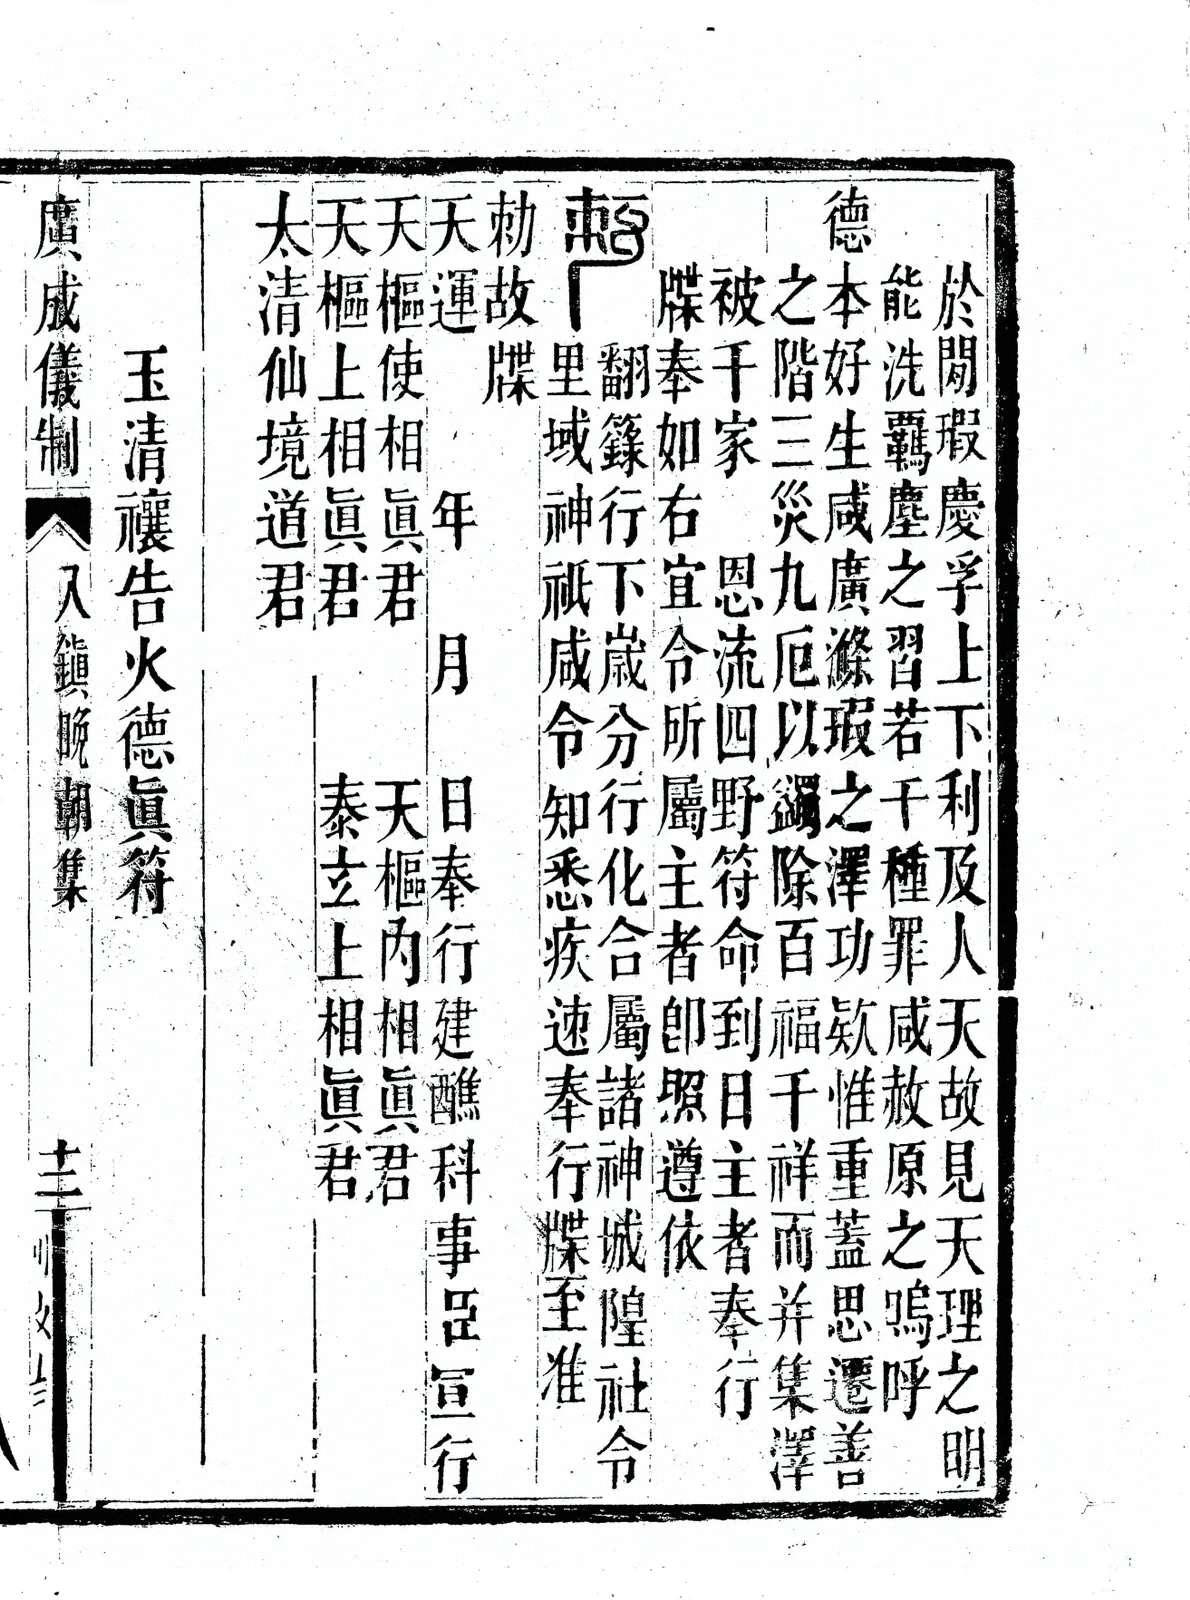 於閒瑕慶孚上下利及人天故見天理之明
能洗羈塵之習若干種罪咸赦原之嗚呼
德本好生咸廣滌瑕之澤功欵惟重蓋思遷善
之階三災九厄以蠲除百福千祥而并集澤
被千家　恩流四野符命到日主者奉行
牒奉如右宜令所屬主者卽照遵依
敕　翻籙行下歲分行化合屬諸神城隍社令
里域神祇咸令知悉疾速奉行牒至准
勅故牒
天運　年　月　日奉行建醮科事臣　宣行
天樞使相眞君　天樞內相眞君
天樞上相眞君　泰玄上相眞君
太清仙境道君
玉清禳告火德眞符
廣成儀制　入鎮晚朝集　十三